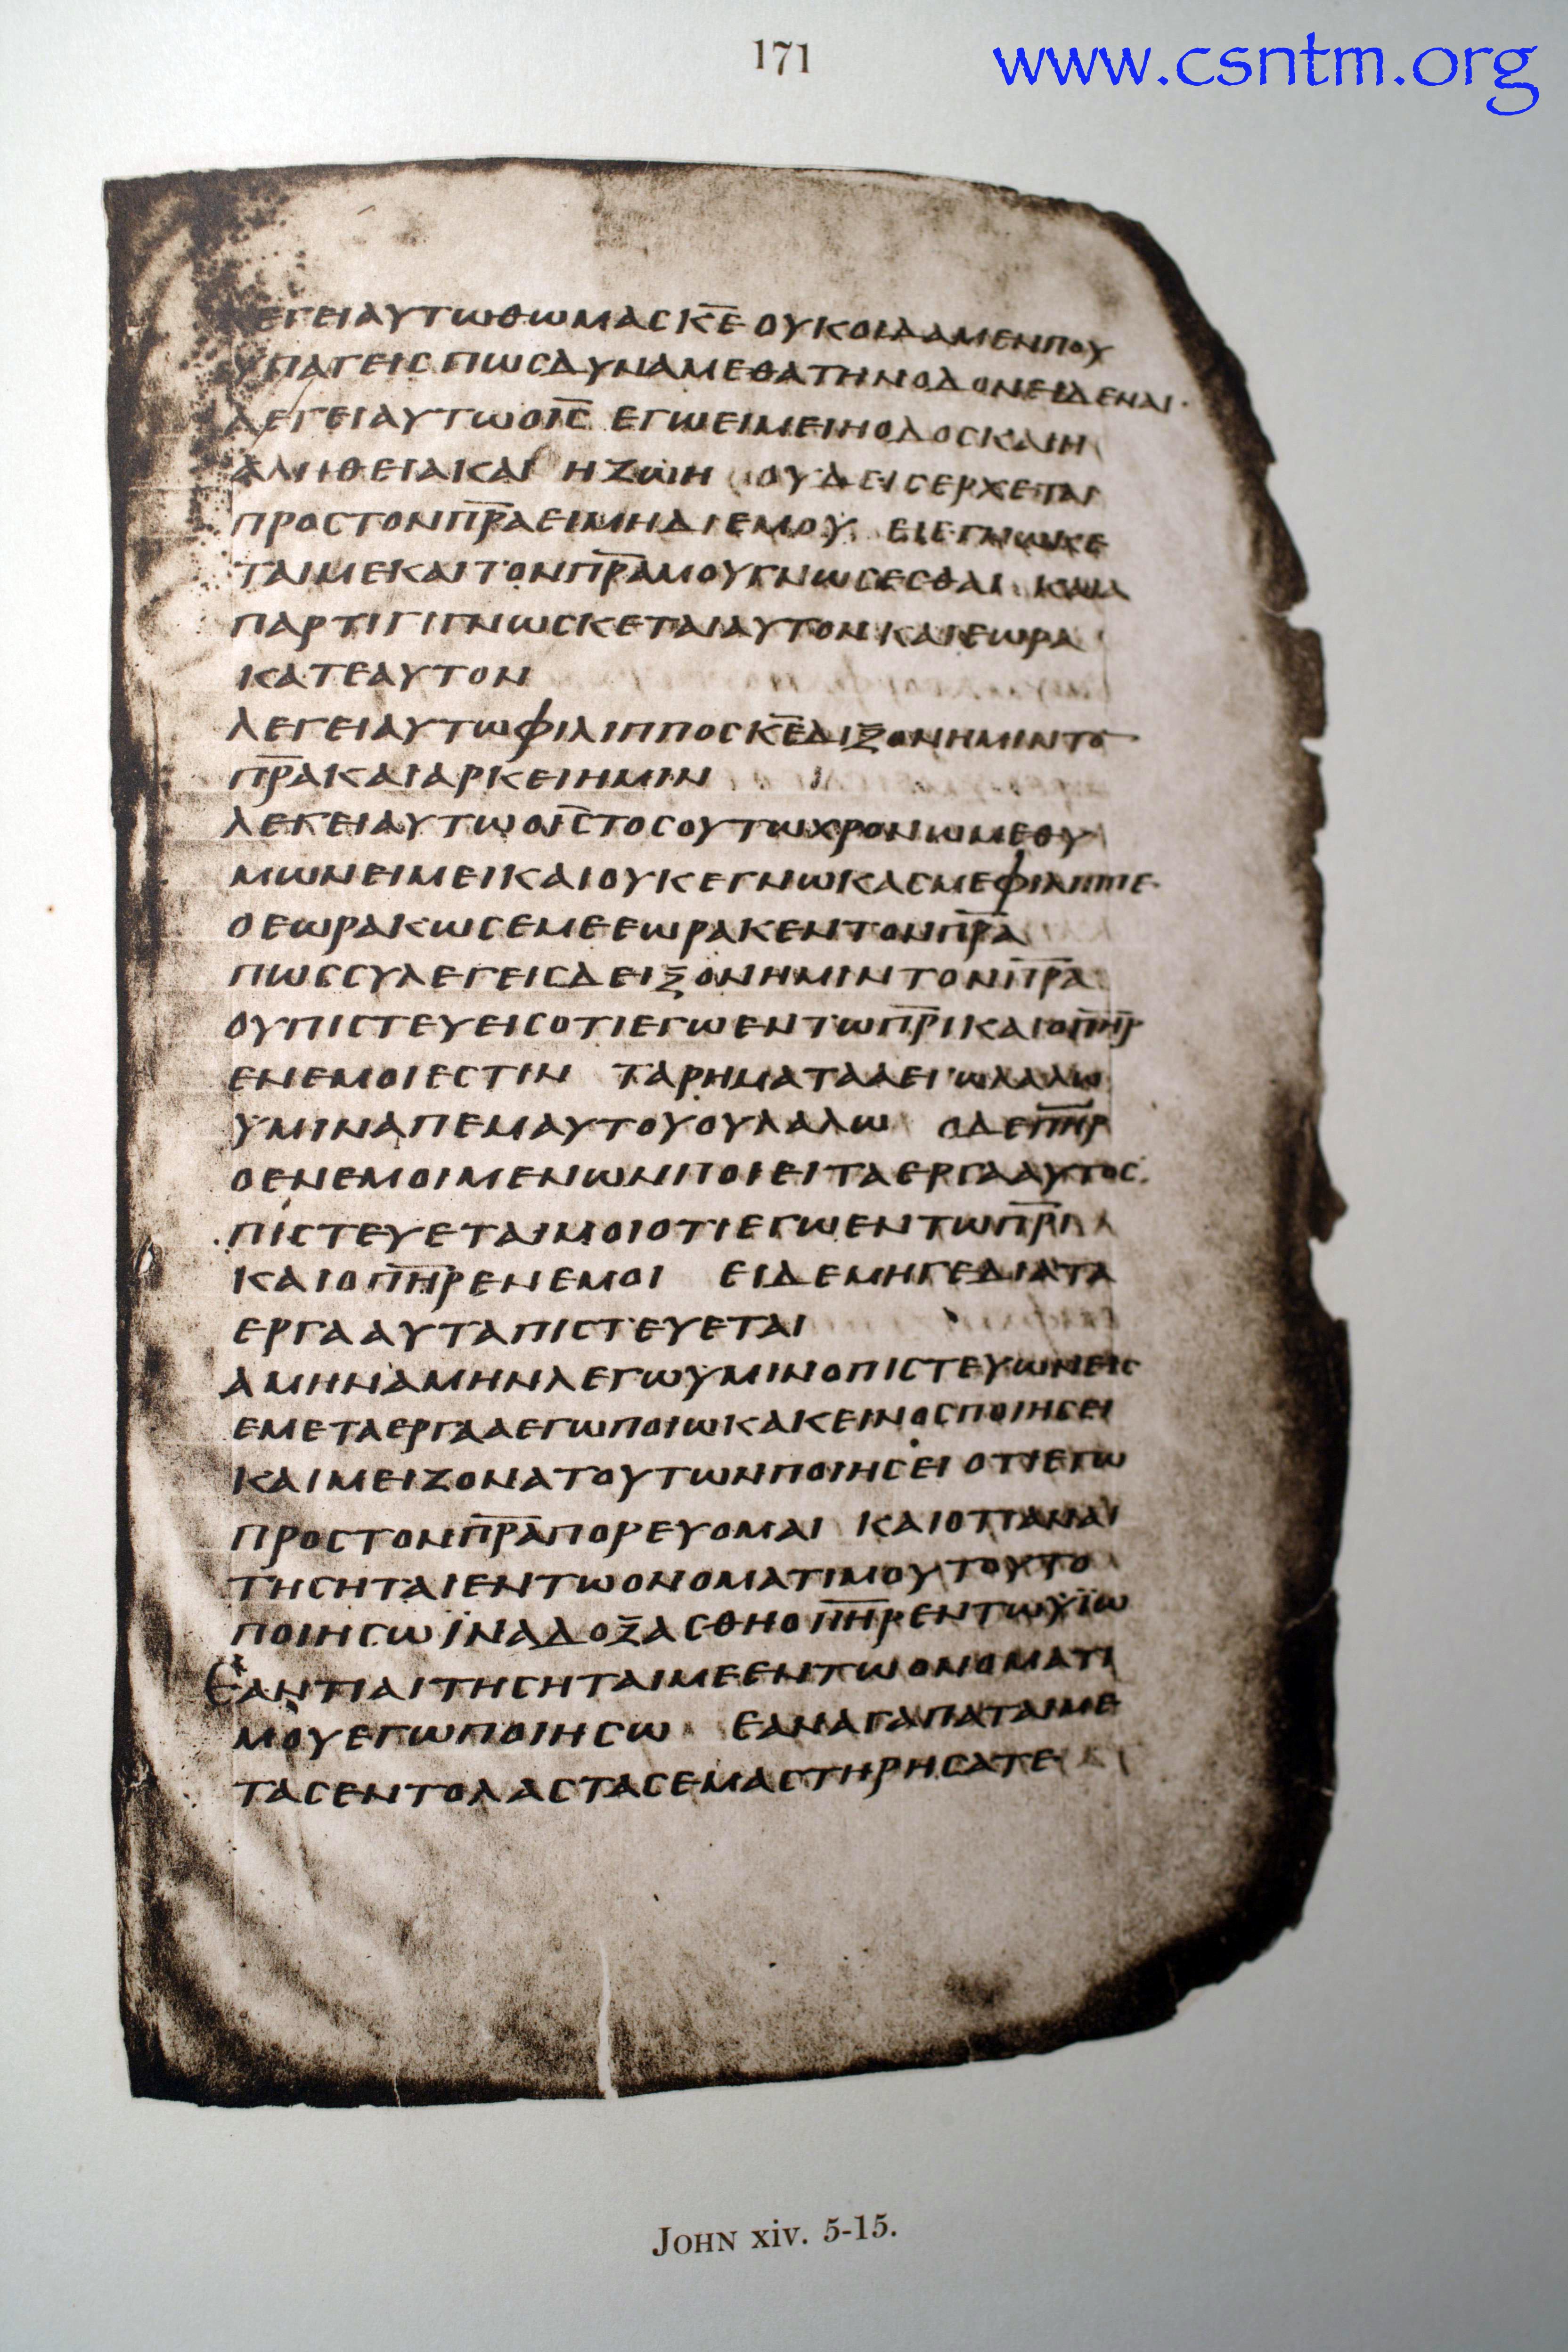 171
www.csntm.org
ΛΕΓΕΙΑΥΤΩΘΩΜΑϹΚ̅Ε̅ ΟΥΚΟΙΔΑΜΕΝΠΟΥ
ΥΠΑΓΕΙϹΠΩϹΔΥΝΑΜΕΘΑΤΗΝΟΔΟΝΕΙΔΕΝΑΙ·
ΛΕΓΕΙΑΥΤΩΟΙ̅Ϲ̅ ΕΓΩΕΙΜΕΙΗΟΔΟϹΚΑΙΗ
ΑΛΗΘΕΙΑΚΑΙ ΗΖΩΗ ΟΥΔΕΙϹΕΡΧΕΤΑΙ
ΠΡΟϹΤΟΝΠ̅Ρ̅Α̅ΕΙΜΗΔΙΕΜΟΥ ΕΙΕΓΝΩΚΕ
ΤΑΙΜΕΚΑΙΤΟΝΠ̅Ρ̅Α̅ΜΟΥΓΝΩϹΕϹΘΑΙ ΚΑΙΑ
ΠΑΡΤΙΓΙΓΝΩϹΚΕΤΑΙΑΥΤΟΝΚΑΙΕΩΡΑ
ΚΑΤΕΑΥΤΟΝ
ΛΕΓΕΙΑΥΤΩΦΙΛΙΠΠΟϹΚ̅Ε̅ΔΙΞΟΝΗΜΙΝΤΟ̅
Π̅Ρ̅Α̅ΚΑΙΑΡΚΕΙΗΜΙΝ
ΛΕΓΕΙΑΥΤΩΟΙ̅Ϲ̅ΤΟϹΟΥΤΩΧΡΟΝΩΜΕΘΥ
ΜΩΝΕΙΜΕΙΚΑΙΟΥΚΕΓΝΩΚΑϹΜΕΦΙΛΙΠΠΕ·
ΟΕΩΡΑΚΩϹΕΜΕΕΩΡΑΚΕΝΤΟΝΠ̅Ρ̅Α̅
ΠΩϹϹΥΛΕΓΕΙϹΔΕΙΞΟΝΗΜΙΝΤΟΝΠ̅Ρ̅Α̅
ΟΥΠΙϹΤΕΥΕΙϹΟΤΙΕΓΩΕΝΤΩΠ̅Ρ̅Ι̅ΚΑΙΟΠ̅Η̅Ρ̅
ΕΝΕΜΟΙΕϹΤΙΝ ΤΑΡΗΜΑΤΑΑΕΓΩΛΑΛΩ
ΥΜΙΝΑΠΕΜΑΥΤΟΥΟΥΛΑΛΩ ΟΔΕΠ̅Η̅Ρ̅
ΟΕΝΕΜΟΙΜΕΝΩΝΠΟΙΕΙΤΑΕΡΓΑΑΥΤΟϹ·
ΠΙϹΤΕΥΕΤΑΙΜΟΙΟΤΙΕΓΩΕΝΤΩΠ̅Ρ̅Ι̅
ΚΑΙΟΠ̅Η̅Ρ̅ΕΝΕΜΟΙ ΕΙΔΕΜΗΓΕΔΙΑΤΑ
ΕΡΓΑΑΥΤΑΠΙϹΤΕΥΕΤΑΙ
ΑΜΗΝΑΜΗΝΛΕΓΩΥΜΙΝΟΠΙϹΤΕΥΩΝΕΙϹ
ΕΜΕΤΑΕΡΓΑΑΕΓΩΠΟΙΩΚΑΚΕΙΝΟϹΠΟΙΗϹΕΙ
ΚΑΙΜΕΙΖΟΝΑΤΟΥΤΩΝΠΟΙΗϹΕΙ ΟΤΙΕΓΩ
ΠΡΟϹΤΟΝΠ̅Ρ̅Α̅ΠΟΡΕΥΟΜΑΙ ΚΑΙΟΤΙΑΝΑΙ
ΤΗϹΗΤΑΙΕΝΤΩΟΝΟΜΑΤΙΜΟΥΤΟΥΤΟ
ΠΟΙΗϹΩΪΝΑΔΟΞΑϹΘΗΟΠ̅Η̅Ρ̅ΕΝΤΩΥΪΩ
ΕΑΝΤΙΑΙΤΗϹΗΤΑΙΜΕΕΝΤΩΟΝΟΜΑΤΙ
ΜΟΥΕΓΩΠΟΙΗϹΩ ΕΑΝΑΓΑΠΑΤΑΙΜΕ
ΤΑϹΕΝΤΟΛΑϹΤΑϹΕΜΑϹΤΗΡΗϹΑΤΕ
JOHN xiv. 5-15.